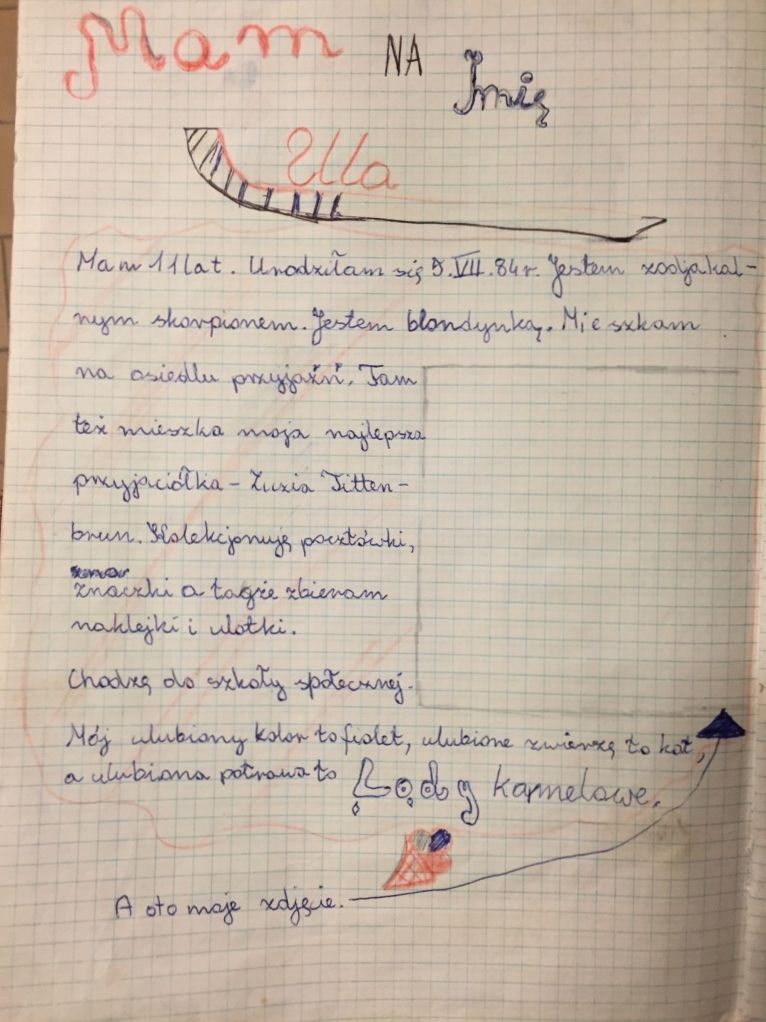 Mam NA Imię
Ulla
Mam 11 lat. Urodziłam się 5.VII.84r. Jestem zodjakal-
nym skorpionem. Jestem blondynką. Mieszkam
na osiedlu przyjaźń. Tam
też mieszka moja najlepsza
przyjaciółka - Zuzia Titten-
brun. Kolekcjonuję pocztówki,
znaczki a tagże zbieram
naklejki i ulotki.
Chodzę do szkoły społecznej.
Mój ulubiony kolor to fiolet, ulubione zwierzę to kot,
a ulubiona potrawa to Lody karmelowe.
A oto moje zdjęcie.